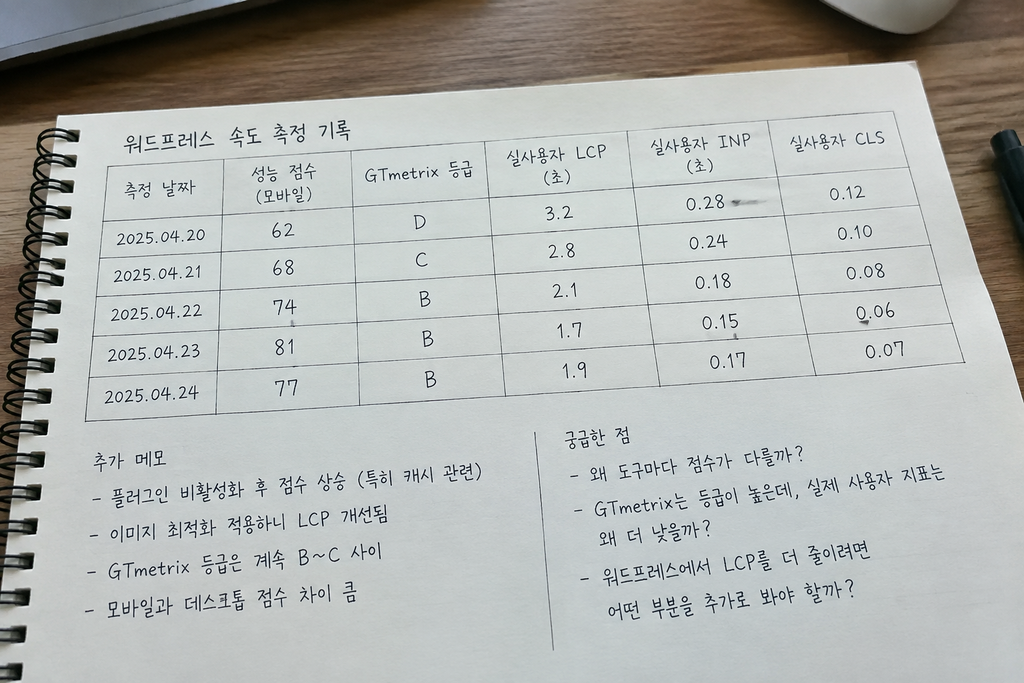 워드프레스 속도 측정 기록
측정 날짜 성능 점수 (모바일) GTmetrix 등급 실사용자 LCP (초) 실사용자 INP (초) 실사용자 CLS
2025.04.20 62 D 3.2 0.28 0.12
2025.04.21 68 C 2.8 0.24 0.10
2025.04.22 74 B 2.1 0.18 0.08
2025.04.23 81 B 1.7 0.15 0.06
2025.04.24 77 B 1.9 0.17 0.07
추가 메모
- 플러그인 비활성화 후 점수 상승 (특히 캐시 관련)
- 이미지 최적화 적용하니 LCP 개선됨
- GTmetrix 등급은 계속 B~C 사이
- 모바일과 데스크톱 점수 차이 큼
궁금한 점
- 왜 도구마다 점수가 다를까?
- GTmetrix는 등급이 높은데, 실제 사용자 지표는
왜 더 낮을까?
- 워드프레스에서 LCP를 더 줄이려면
어떤 부분을 추가로 봐야 할까?